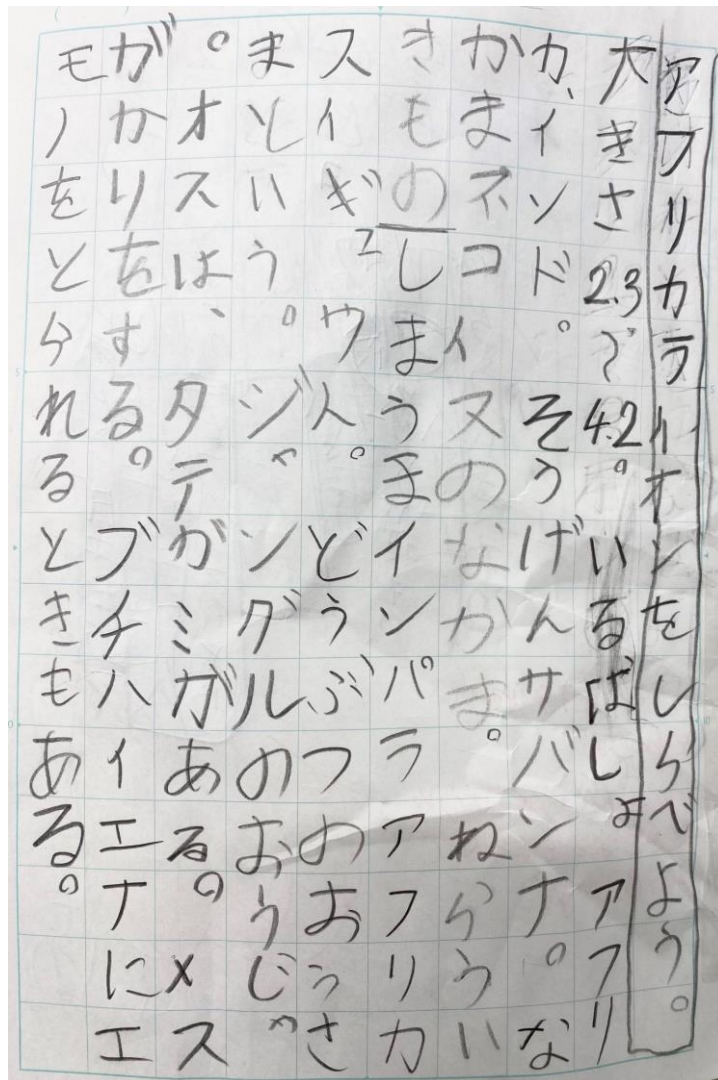 アフリカライオンをしらべよう。
大きさ2.3〜4.2。いるばしょアフリ
カ、インド。そうげんサバンナ。な
かまネコイヌのなかま。ねらうい
きものしまうまインパラアフリカ
スイギュウ人。どうぶつのおうさ
まという。ジャングルのおうじゃ
。オスは、タテガミがある。メス
がかりをする。ブチハイエナにエ
モノをとられるときもある。